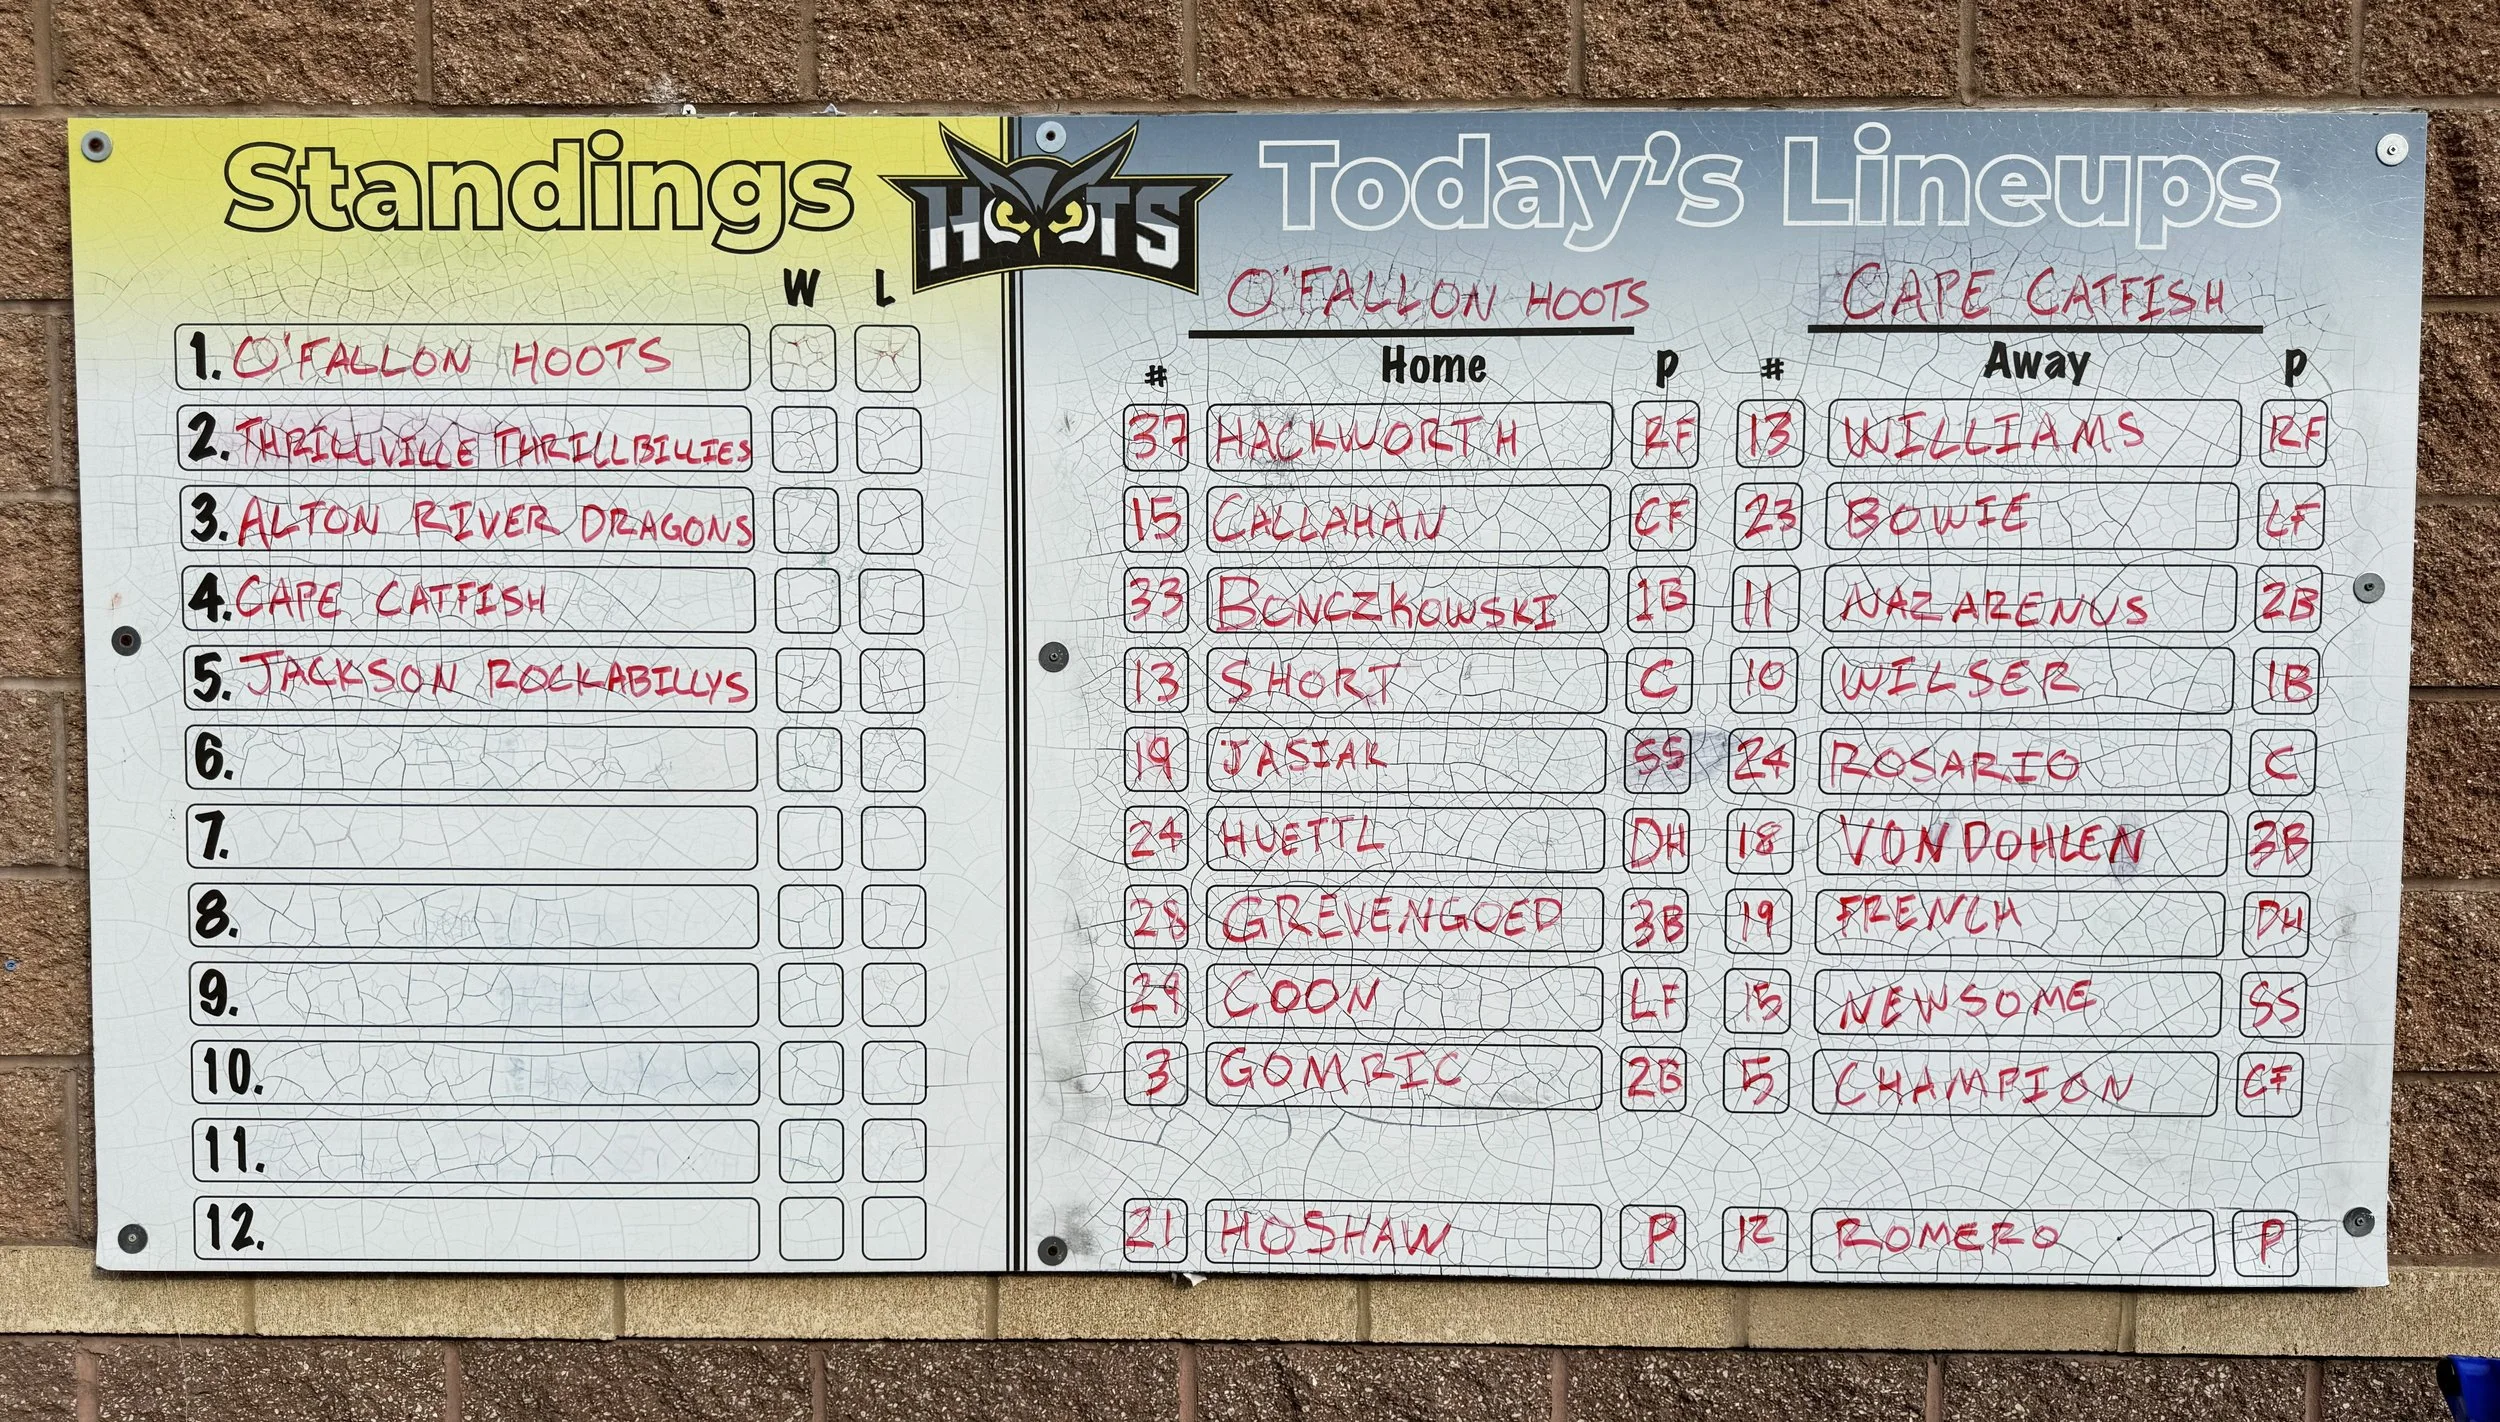 Standings
HOOTS
W L
1. O'FALLON HOOTS
2. THRILLVILLE THRILLBILLIES
3. ALTON RIVER DRAGONS
4. CAPE CATFISH
5. JACKSON ROCKABILLYS
6.
7.
8.
9.
10.
11.
12.
Today's Lineups
O'FALLON HOOTS CAPE CATFISH
# Home P # Away P
37 HACKWORTH RF 13 WILLIAMS RF
15 CALLAHAN CF 23 BOWIE LF
33 BONCZKOWSKI 1B 11 NAZARENUS 2B
13 SHORT C 10 WILSER 1B
19 JASIAK SS 24 ROSARIO C
24 HUETTL DH 18 VONDOHLEN 3B
28 GREVENGOED 3B 19 FRENCH DH
29 COON LF 15 NEWSOME SS
3 GOMRIC 2B 5 CHAMPION CF
21 HOSHAW P 12 ROMERO P